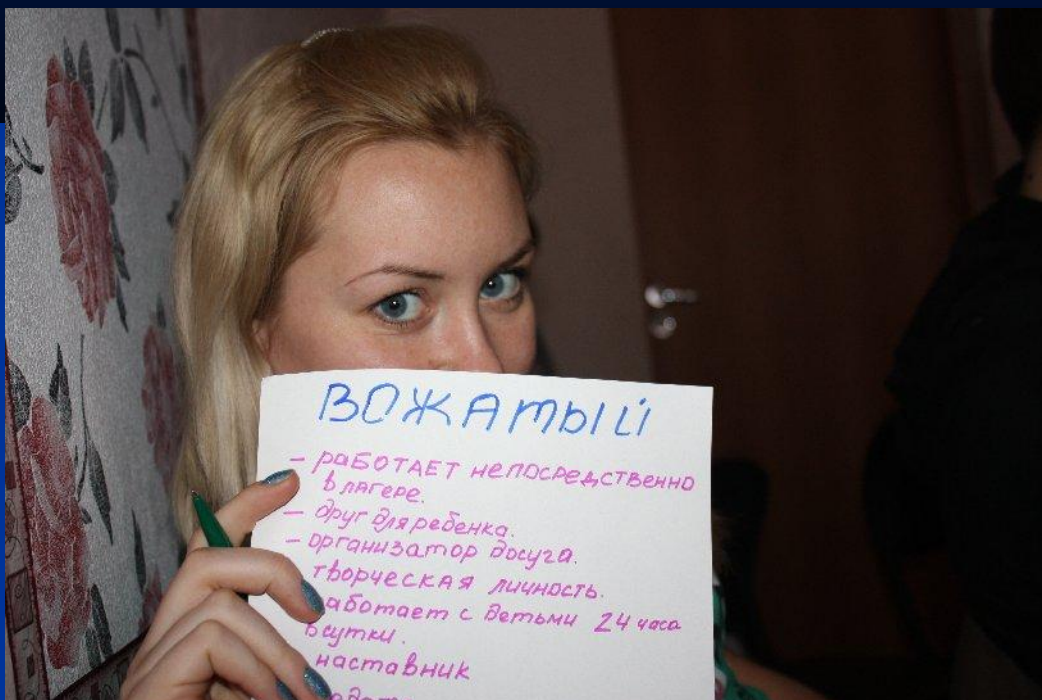 ВОЖАТЫЙ
- работает непосредственно
в лагере.
- друг для ребенка.
- организатор досуга.
творческая личность.
аботает с детьми 24 часа
в сутки.
наставник